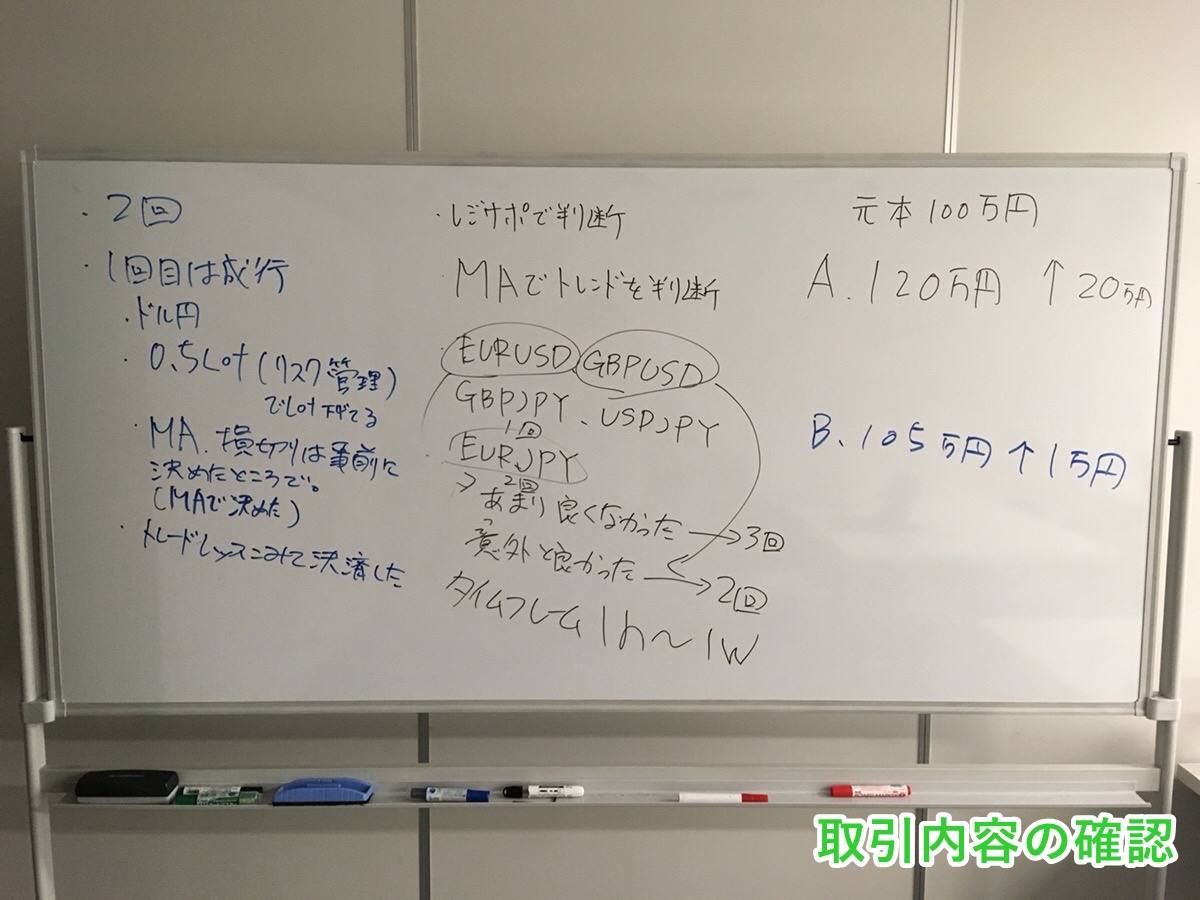 ・2回
・1回目は成行
・ドル円
・0.5Lot(リスク管理)
でLot下げてる
・MA.損切りは事前に
決めたところで。
(MAで決めた)
・トレードレッスンみて決済した
・レジサポで判断
・MAでトレンドを判断
・EURUSD GBPUSD
GBPJPY、USDJPY
1回
・EURJPY
2回
>あまり良くなかった→3回
意外と良かった→2回
タイムフレーム1h～1W
元本100万円
A.120万円 ↑20万円
B、105万円↑1万円
取引内容の確認